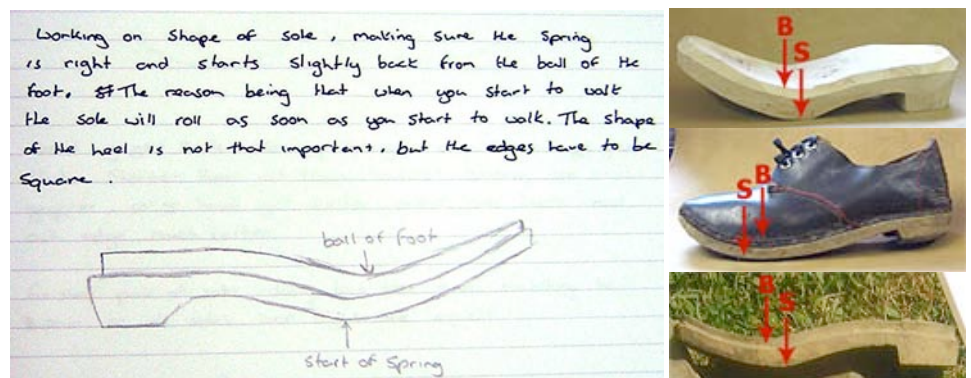 Working on Shape of sole, making sure the spring
is right and starts slightly back from the ball of the
foot. The reason being that when you start to walk
the sole will roll as soon as you start to walk. The shape
of the heel is not that important, but the edges have to be
Square.
ball of foot
start of spring
B
S
S
B
B
S